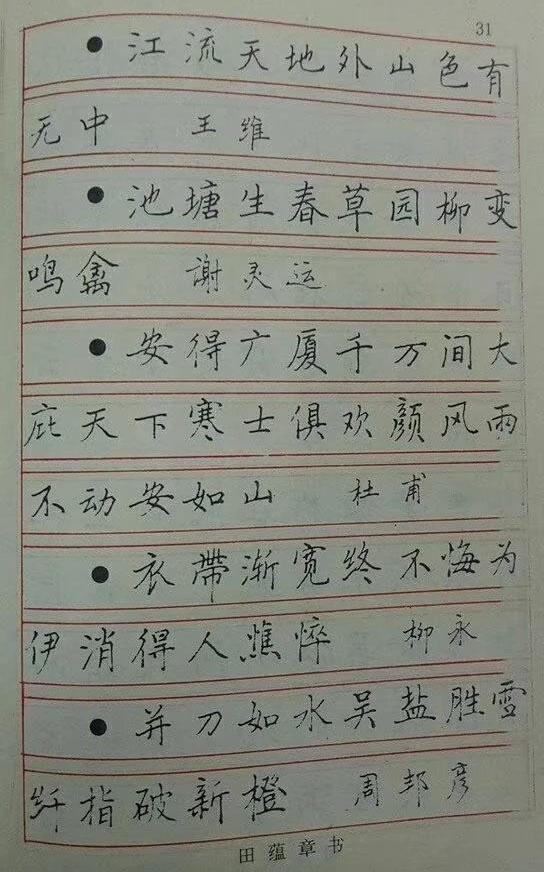 31
●江流天地外山色有
无中 王维
●池塘生春草园柳变
鸣禽 謝灵运
●安得广厦千万间大
庇天下寒士俱欢颜风雨
不动安如山 杜甫
●衣帶渐宽终不悔为
伊消得人憔悴 柳永
●并刀如水吴盐胜雪
纤指破新橙 周邦彦
田蕴章书